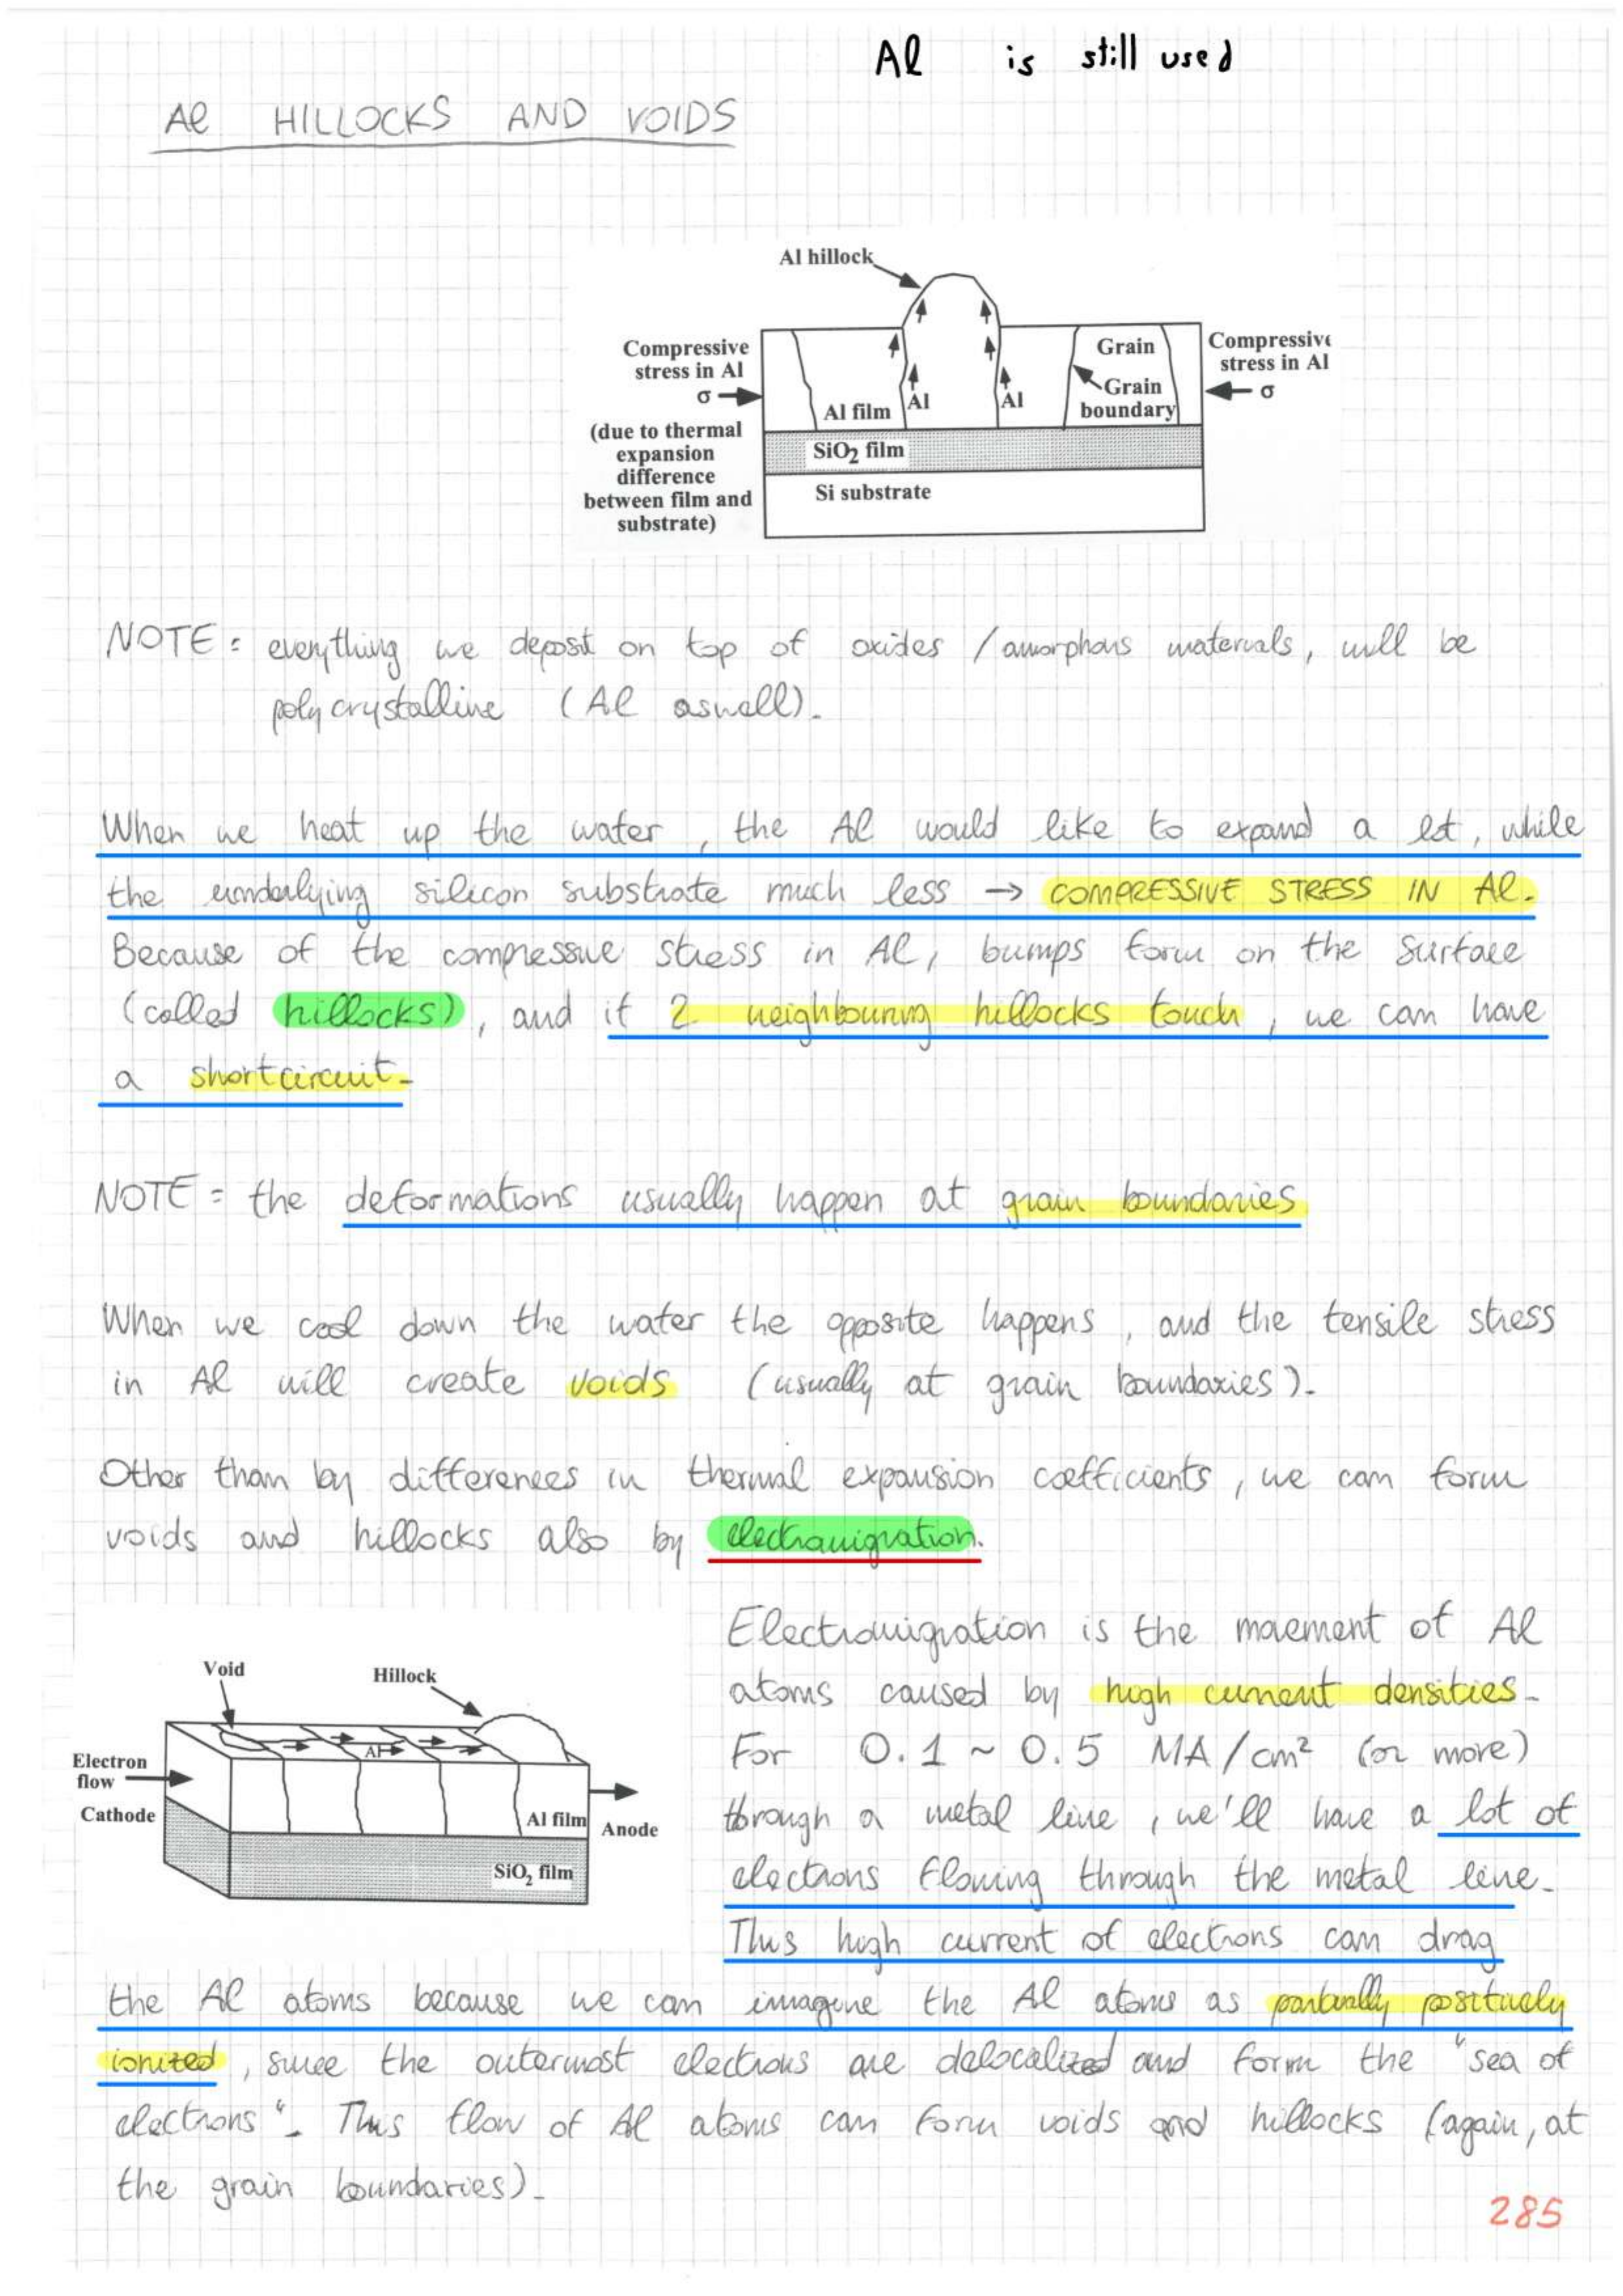 Al is still used
Al HILLOCKS AND VOIDS
Al hillock
Compressive
stress in Al
σ
(due to thermal
expansion
difference
between film and
substrate)
Al film
Al
Al
Grain
Grain
boundary
Compressive
stress in Al
σ
SiO2 film
Si substrate
NOTE: everything we deposit on top of oxides / amorphous materials, will be
polycrystalline (Al aswell).
When we heat up the water, the Al would like to expand a lot, while
the underlying silicon substrate much less → COMPRESSIVE STRESS IN Al.
Because of the compressive stress in Al, bumps form on the surface
(called hillocks), and if 2 neighbouring hillocks touch, we can have
a shortcircuit.
NOTE: the deformations usually happen at grain boundaries
When we cool down the water the opposite happens, and the tensile stress
in Al will create voids (usually at grain boundaries).
Other than by differences in thermal expansion coefficients, we can form
voids and hillocks also by electromigration.
Void
Hillock
Electron
flow
Cathode
Al
Al film
Anode
SiO2 film
Electromigration is the movement of Al
atoms caused by high current densities.
For 0.1 ~ 0.5 MA/cm² (or more)
through a metal line, we'll have a lot of
electrons flowing through the metal line.
This high current of electrons can drag
the Al atoms because we can imagine the Al atoms as partially positively
ionized, since the outermost electrons are delocalized and form the "sea of
electrons". This flow of Al atoms can form voids and hillocks (again, at
the grain boundaries).
285